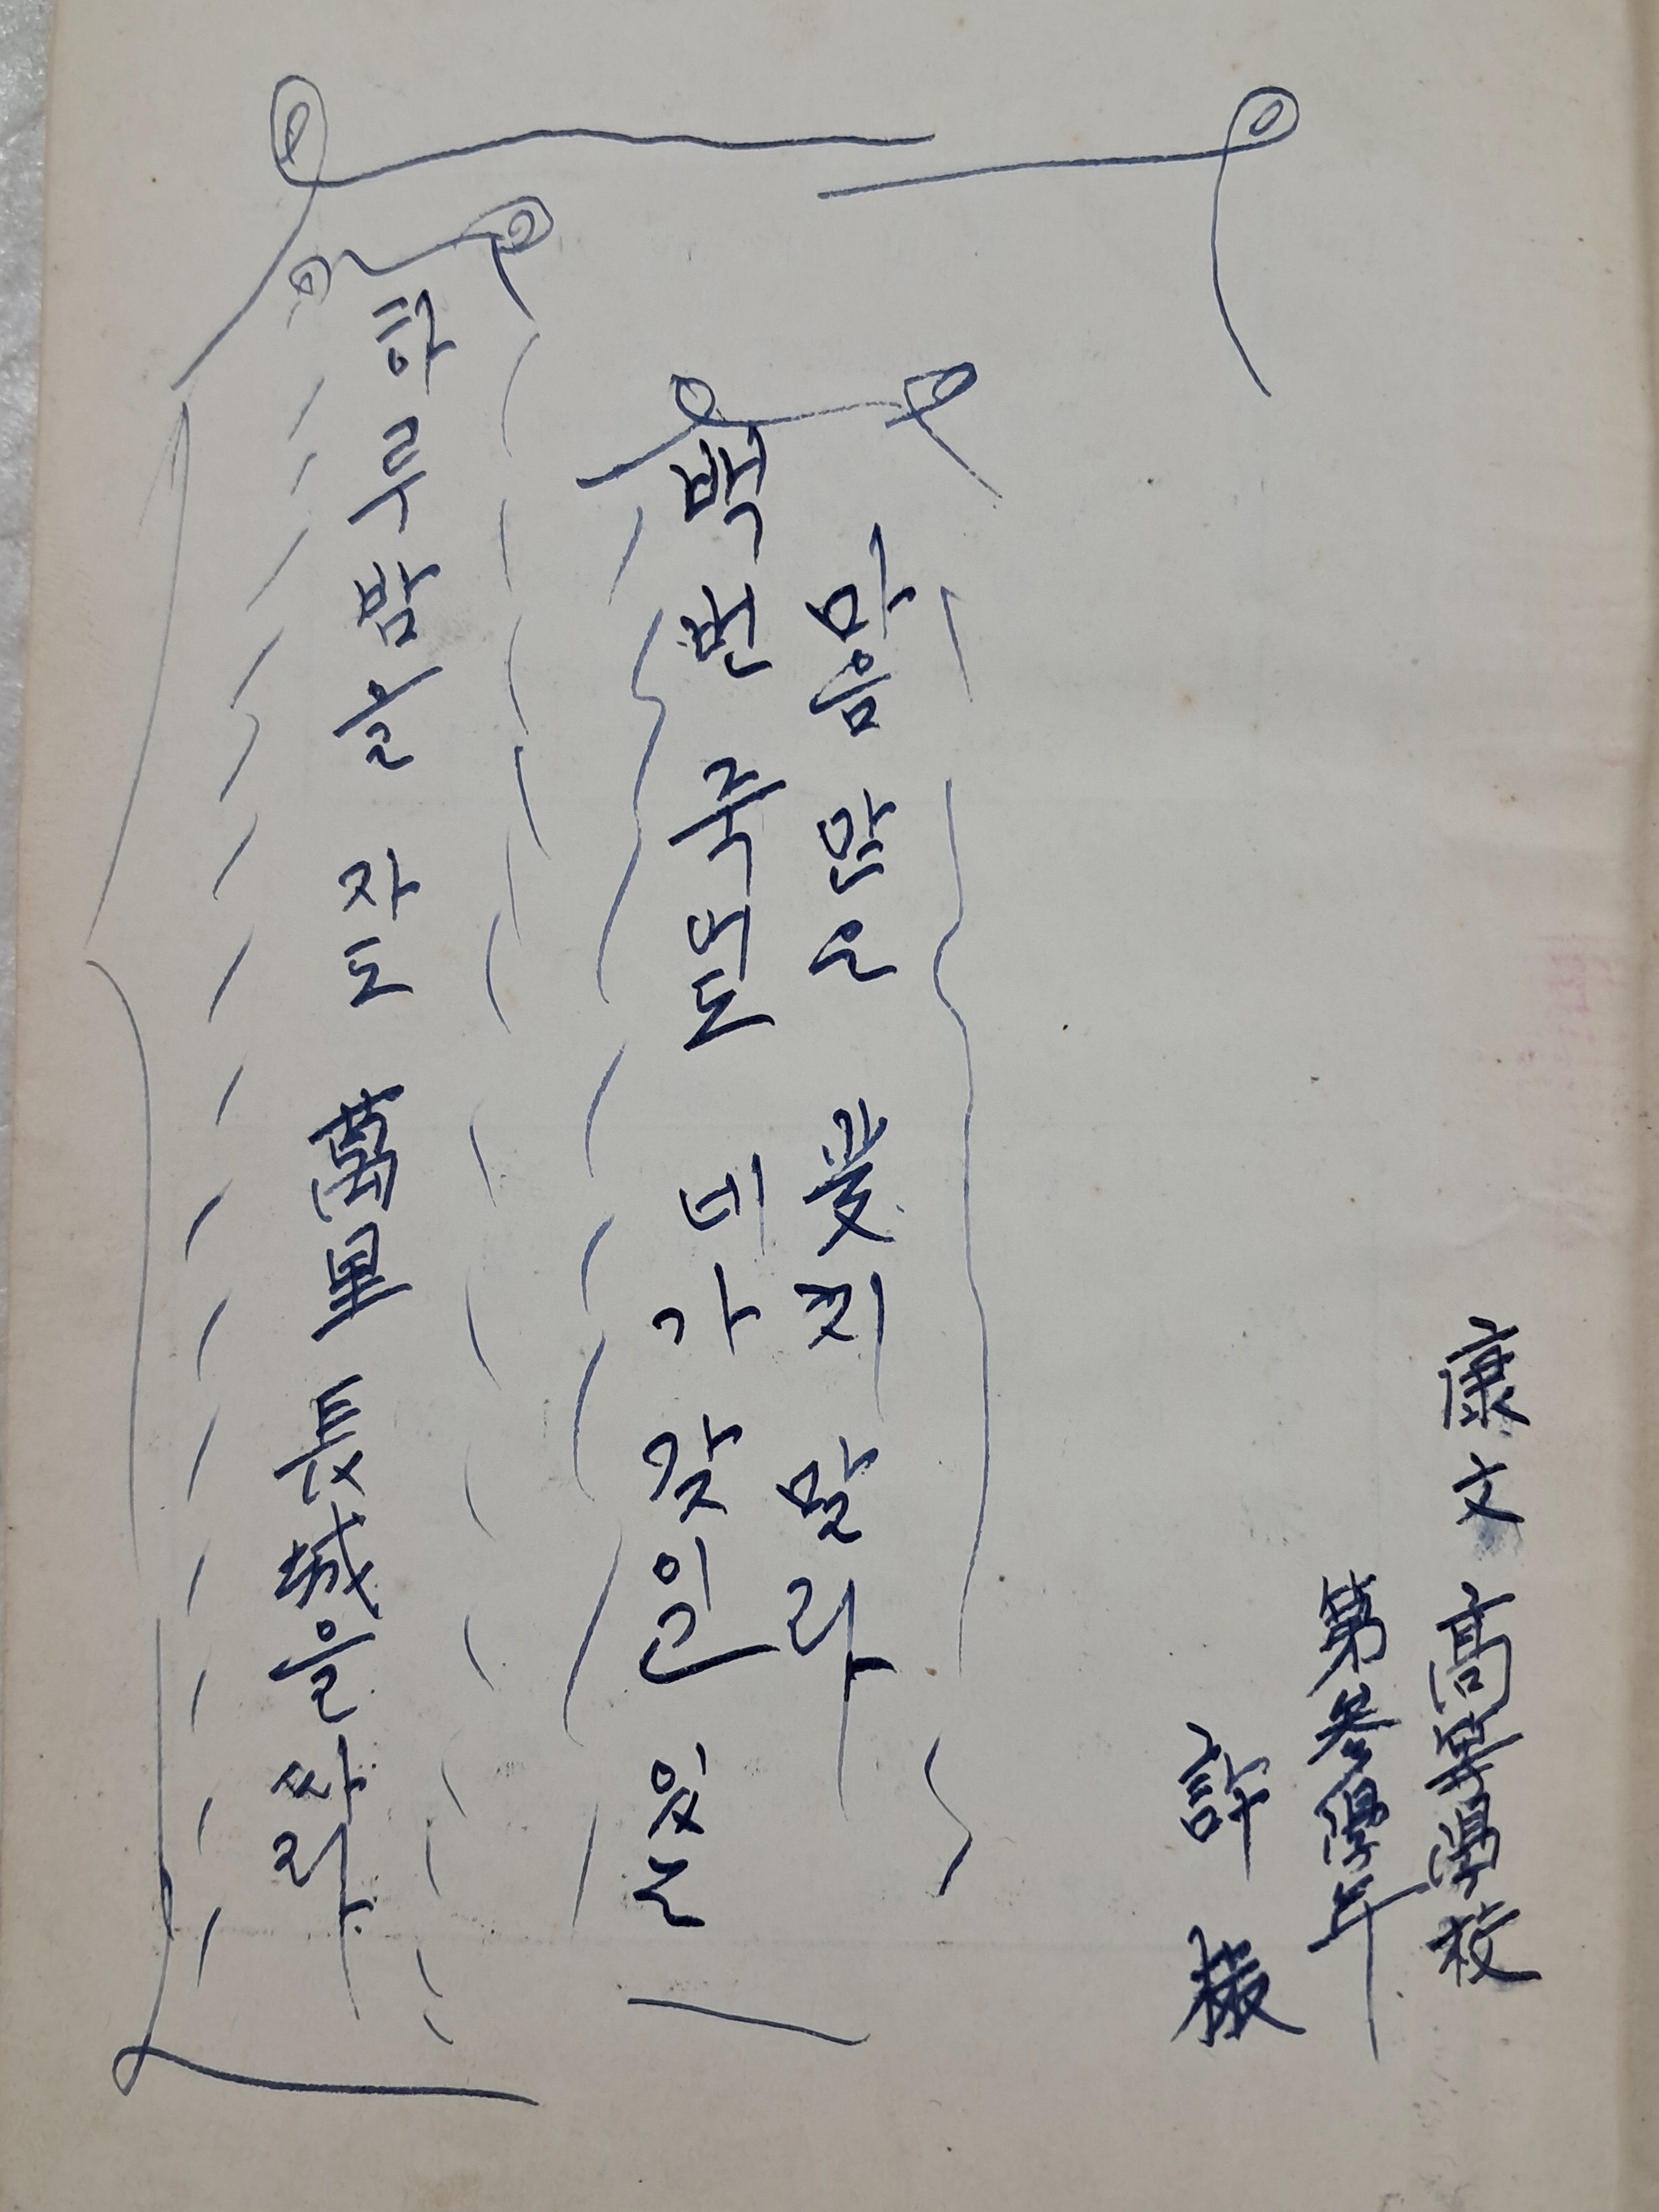 康文 高等學校
第参學年
許
마음 않은 愛치 말라
백번 죽오도 네가 갖인 잊는
하루밤을 자도 萬里長城을 싸라